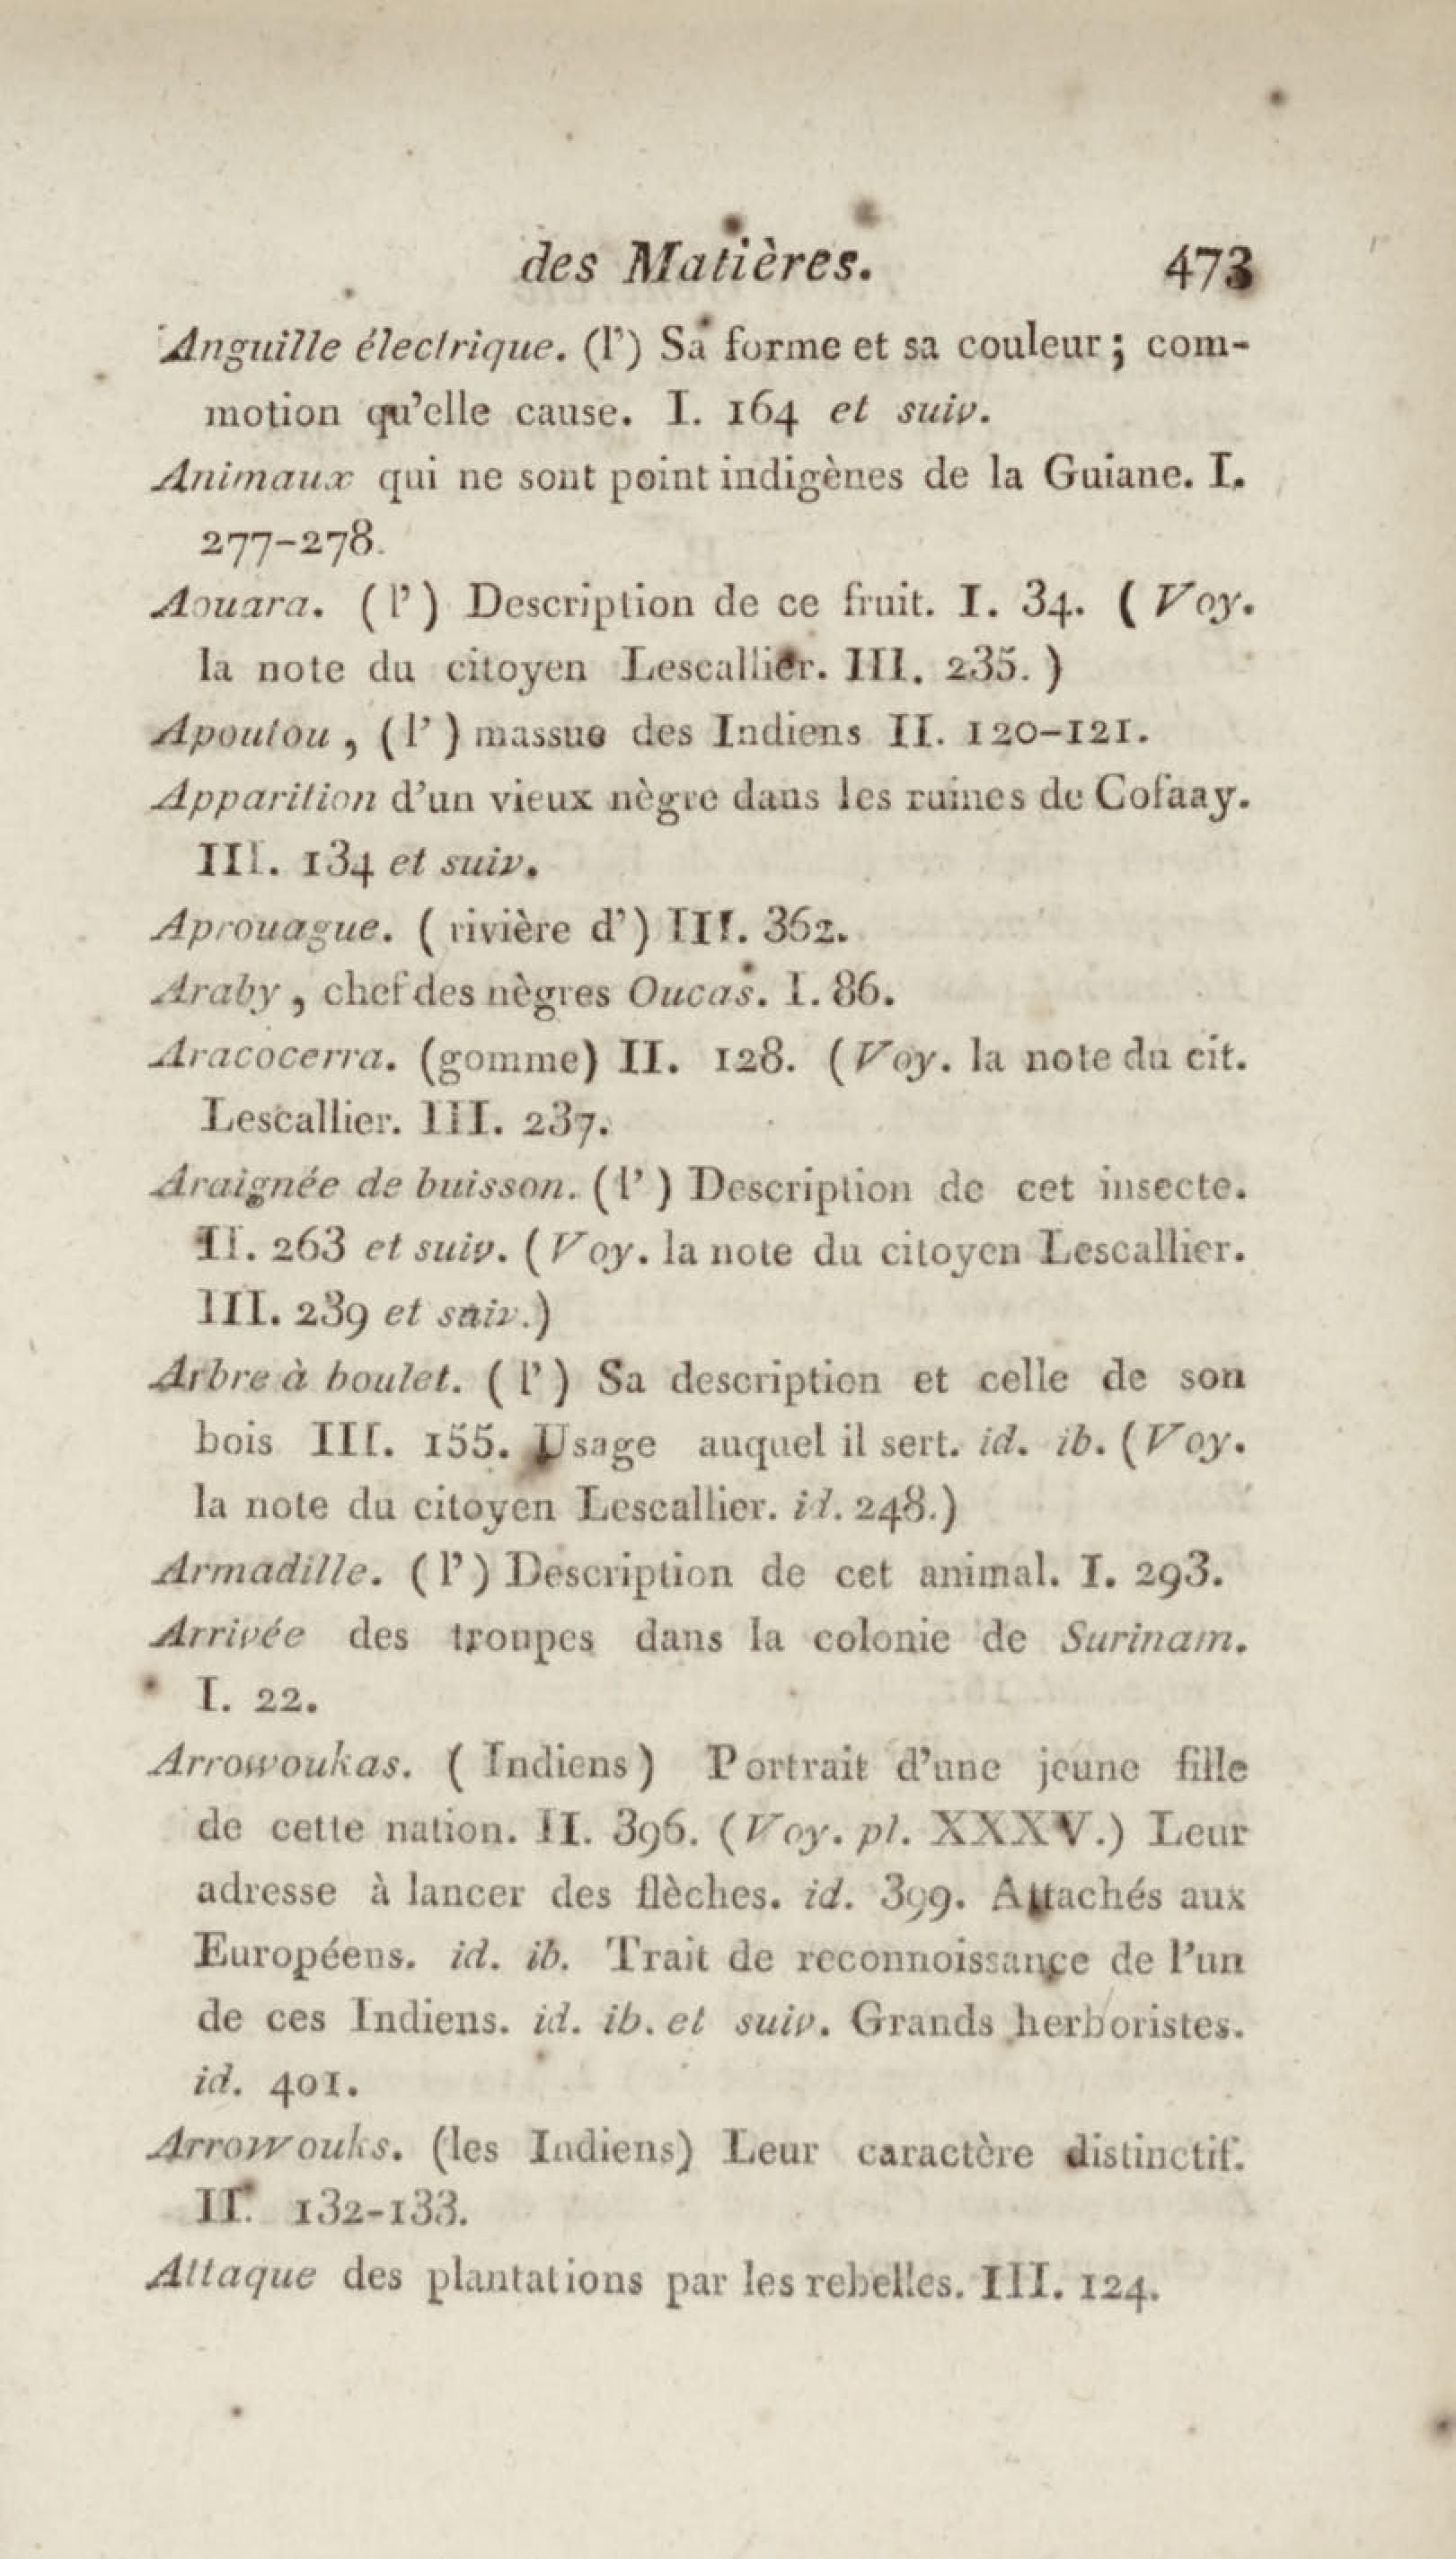 des Matières. 473
Anguille électrique. (l') Sa forme et sa couleur ; com-
motion qu'elle cause. I. 164 et suiv.
Animaux qui ne sont point indigènes de la Guiane. I.
277-278.
Aouara. (l') Description de ce fruit. I. 34. (Voy.
la note du citoyen Lescallier. III. 235.)
Apoutou, (l') massue des Indiens II. 120-121.
Apparition d'un vieux nègre dans les ruines de Cofaay.
III. 134 et suiv.
Aprouague. (rivière d') III. 362.
Araby, chef des nègres Oucas. I. 86.
Aracocerra. (gomme) II. 128. (Voy. la note du cit.
Lescallier. III. 237.
Araignée de buisson. (l') Description de cet insecte.
II. 263 et suiv. (Voy. la note du citoyen Lescallier.
III. 239 et suiv.)
Arbre à boulet. (l') Sa description et celle de son
bois III. 155. Usage auquel il sert. id. ib. (Voy.
la note du citoyen Lescallier. id. 248.)
Armadille. (l') Description de cet animal. I. 293.
Arrivée des troupes dans la colonie de Surinam.
I. 22.
Arrowoukas. (Indiens) Portrait d'une jeune fille
de cette nation. II. 396. (Voy. pl. XXXV.) Leur
adresse à lancer des flèches. id. 399. Attachés aux
Européens. id. ib. Trait de reconnoissance de l'un
de ces Indiens. id. ib. et suiv. Grands herboristes.
id. 401.
Arrowouks. (les Indiens) Leur caractère distinctif.
II. 132-133.
Attaque des plantations par les rebelles. III. 124.